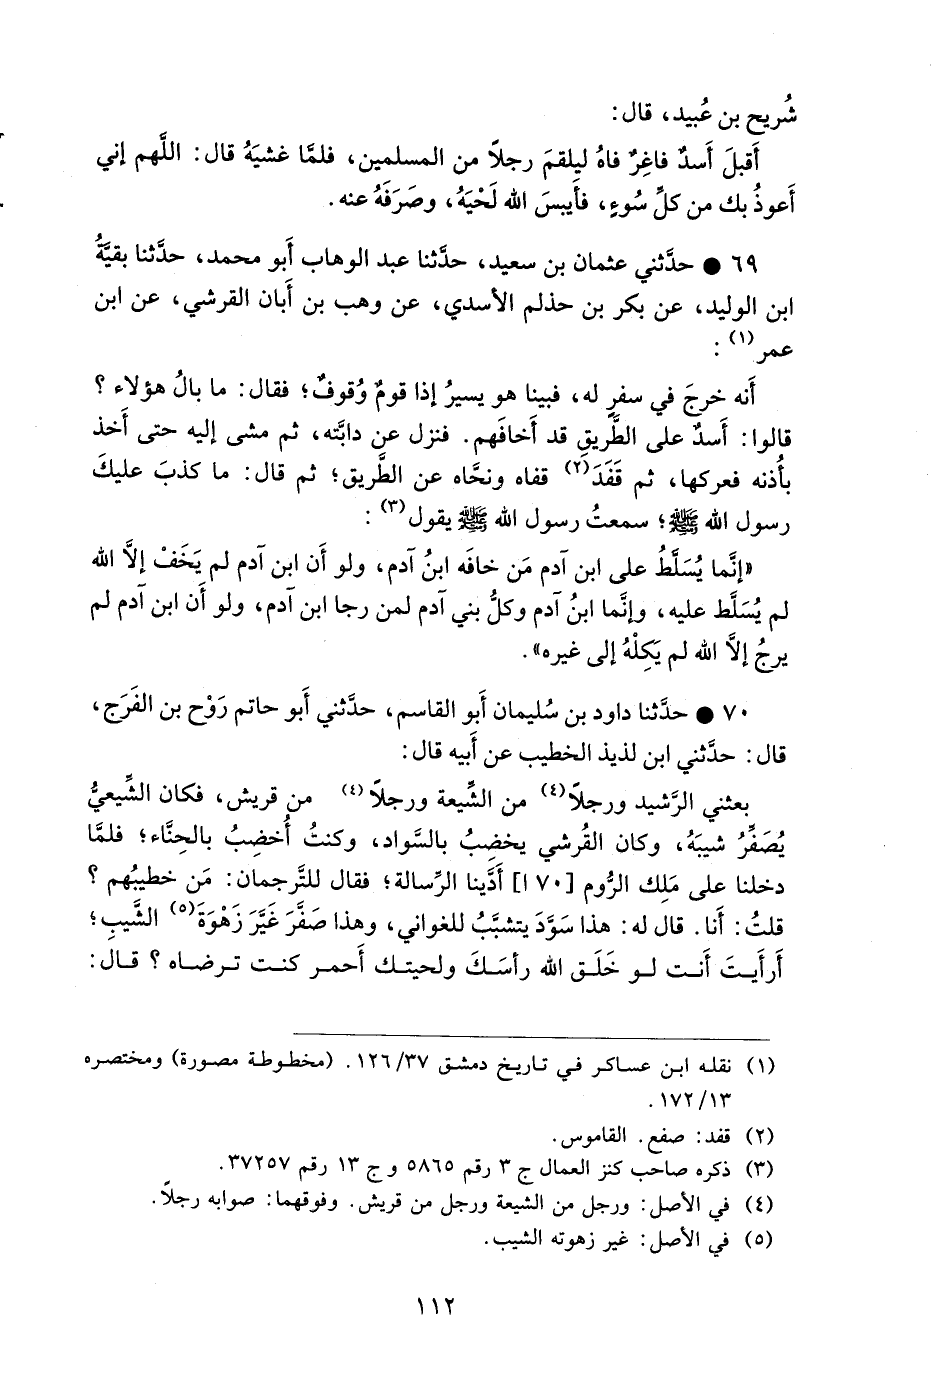 شُريح بن عُبيد، قال:
أَقبلَ أَسدٌ فاغِرٌ فاهُ ليلقمَ رجلاً من المسلمين، فلمَّا غشيَهُ قال: اللَّهم إني
أَعوذُ بك من كلِّ سُوءٍ، فأَيبسَ الله لَحْيَهُ، وصَرَفَهُ عنه.
٦٩ ● حدَّثني عثمان بن سعيد، حدَّثنا عبد الوهاب أَبو محمد، حدَّثنا بقيَّةُ
ابن الوليد، عن بكر بن حذلم الأسدي، عن وهب بن أَبان القرشي، عن ابن
عمر(١):
أَنه خرجَ في سفرٍ له، فبينا هو يسيرُ إذا قومٌ وُقوفٌ؛ فقال: ما بالُ هؤلاء ؟
قالوا: أَسدٌ على الطَّريقِ قد أَخافَهم. فنزل عن دابَّته، ثم مشى إليه حتى أَخذ
بأُذنه فعركها، ثم قَفَدَ(٢) قفاه ونحَّاه عن الطَّريق؛ ثم قال: ما كذبَ عليكَ
رسول الله ﷺ؛ سمعتُ رسول الله ﷺ يقول(٣):
«إنَّما يُسَلَّطُ على ابن آدم مَن خافَه ابنُ آدم، ولو أَن ابن آدم لم يَخَفْ إلاَّ الله
لم يُسَلَّط عليه، وإنَّما ابنُ آدم وكلُّ بني آدم لمن رجا ابن آدم، ولو أَن ابن آدم لم
يرجُ إلاَّ الله لم يَكِلْهُ إلى غيره».
٧٠ ● حدَّثنا داود بن سُليمان أَبو القاسم، حدَّثني أَبو حاتم رَوْح بن الفَرَج،
قال: حدَّثني ابن لذيذ الخطيب عن أَبيه قال:
بعثني الرَّشيد ورجلاً(٤) من الشِّيعة ورجلاً(٤) من قريش، فكان الشِّيعيُّ
يُصَفِّرُ شيبَهُ، وكان القُرشي يخضِبُ بالسَّواد، وكنتُ أُخضِبُ بالحِنَّاء؛ فلمَّا
دخلنا على مَلِك الرُّوم [٧٠ ا] أَدَّينا الرِّسالة؛ فقال للتَّرجمان: مَن خطيبُهم ؟
قلتُ: أَنا. قال له: هذا سَوَّدَ يتشبَّبُ للغواني، وهذا صَفَّرَ غَيَّرَ زَهْوَةَ(٥) الشَّيبِ؛
أَرأَيتَ أَنت لو خَلَق الله رأسَكَ ولحيتك أَحمر كنت ترضاه ؟ قال:
(١) نقله ابن عساكر في تاريخ دمشق ١٢٦/٣٧. (مخطوطة مصورة) ومختصره
١٧٢/١٣.
(٢) قفد: صفع. القاموس.
(٣) ذكره صاحب كنز العمال ج ٣ رقم ٥٨٦٥ و ج ١٣ رقم ٣٧٢٥٧.
(٤) في الأصل: ورجل من الشيعة ورجل من قريش. وفوقهما: صوابه رجلاً.
(٥) في الأصل: غير زهوته الشيب.
١١٢